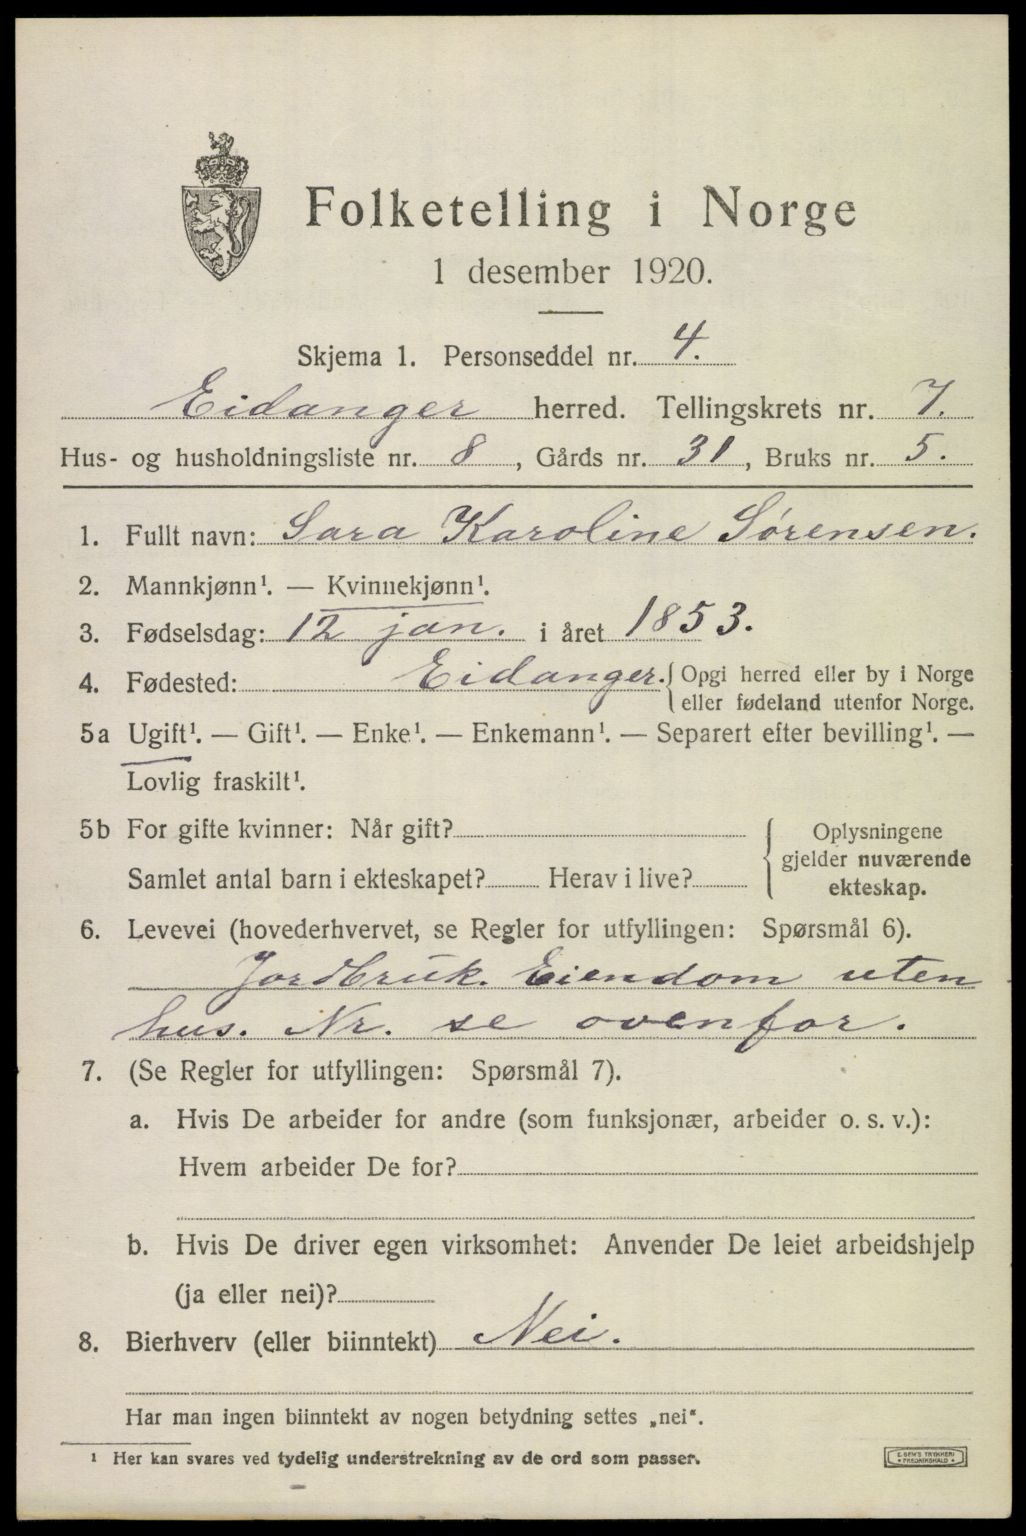 Folketelling i Norge
1 desember 1920.
Skjema 1. Personseddel nr. 4.
Eidanger herred. Tellingskrets nr. 7.
Hus- og husholdningsliste nr. 8, Gårds nr. 31, Bruks nr. 5.
1. Fullt navn: Sara Karoline Sørensen.
2. Mannkjønn¹. — Kvinnekjønn¹.
3. Fødselsdag: 12 jan. i året 1853.
4. Fødested: Eidanger. { Opgi herred eller by i Norge
eller fødeland utenfor Norge.
5a Ugift¹. — Gift¹. — Enke¹. — Enkemann¹. — Separert efter bevilling¹. —
Lovlig fraskilt¹.
5b For gifte kvinner: Når gift?
Samlet antal barn i ekteskapet? Herav i live?
Oplysningene
gjelder nuværende
ekteskap.
6. Levevei (hovederhvervet, se Regler for utfyllingen: Spørsmål 6).
Jordbruk. Eiendom uten
hus. Nr. se ovenfor.
7. (Se Regler for utfyllingen: Spørsmål 7).
a. Hvis De arbeider for andre (som funksjonær, arbeider o. s. v.):
Hvem arbeider De for?
b. Hvis De driver egen virksomhet: Anvender De leiet arbeidshjelp
(ja eller nei)?
8. Bierhverv (eller biinntekt) Nei.
Har man ingen biinntekt av nogen betydning settes „nei“.
¹ Her kan svares ved tydelig understrekning av de ord som passer.
E. SEM'S TRYKKERI
• FREDRIKSHALD •